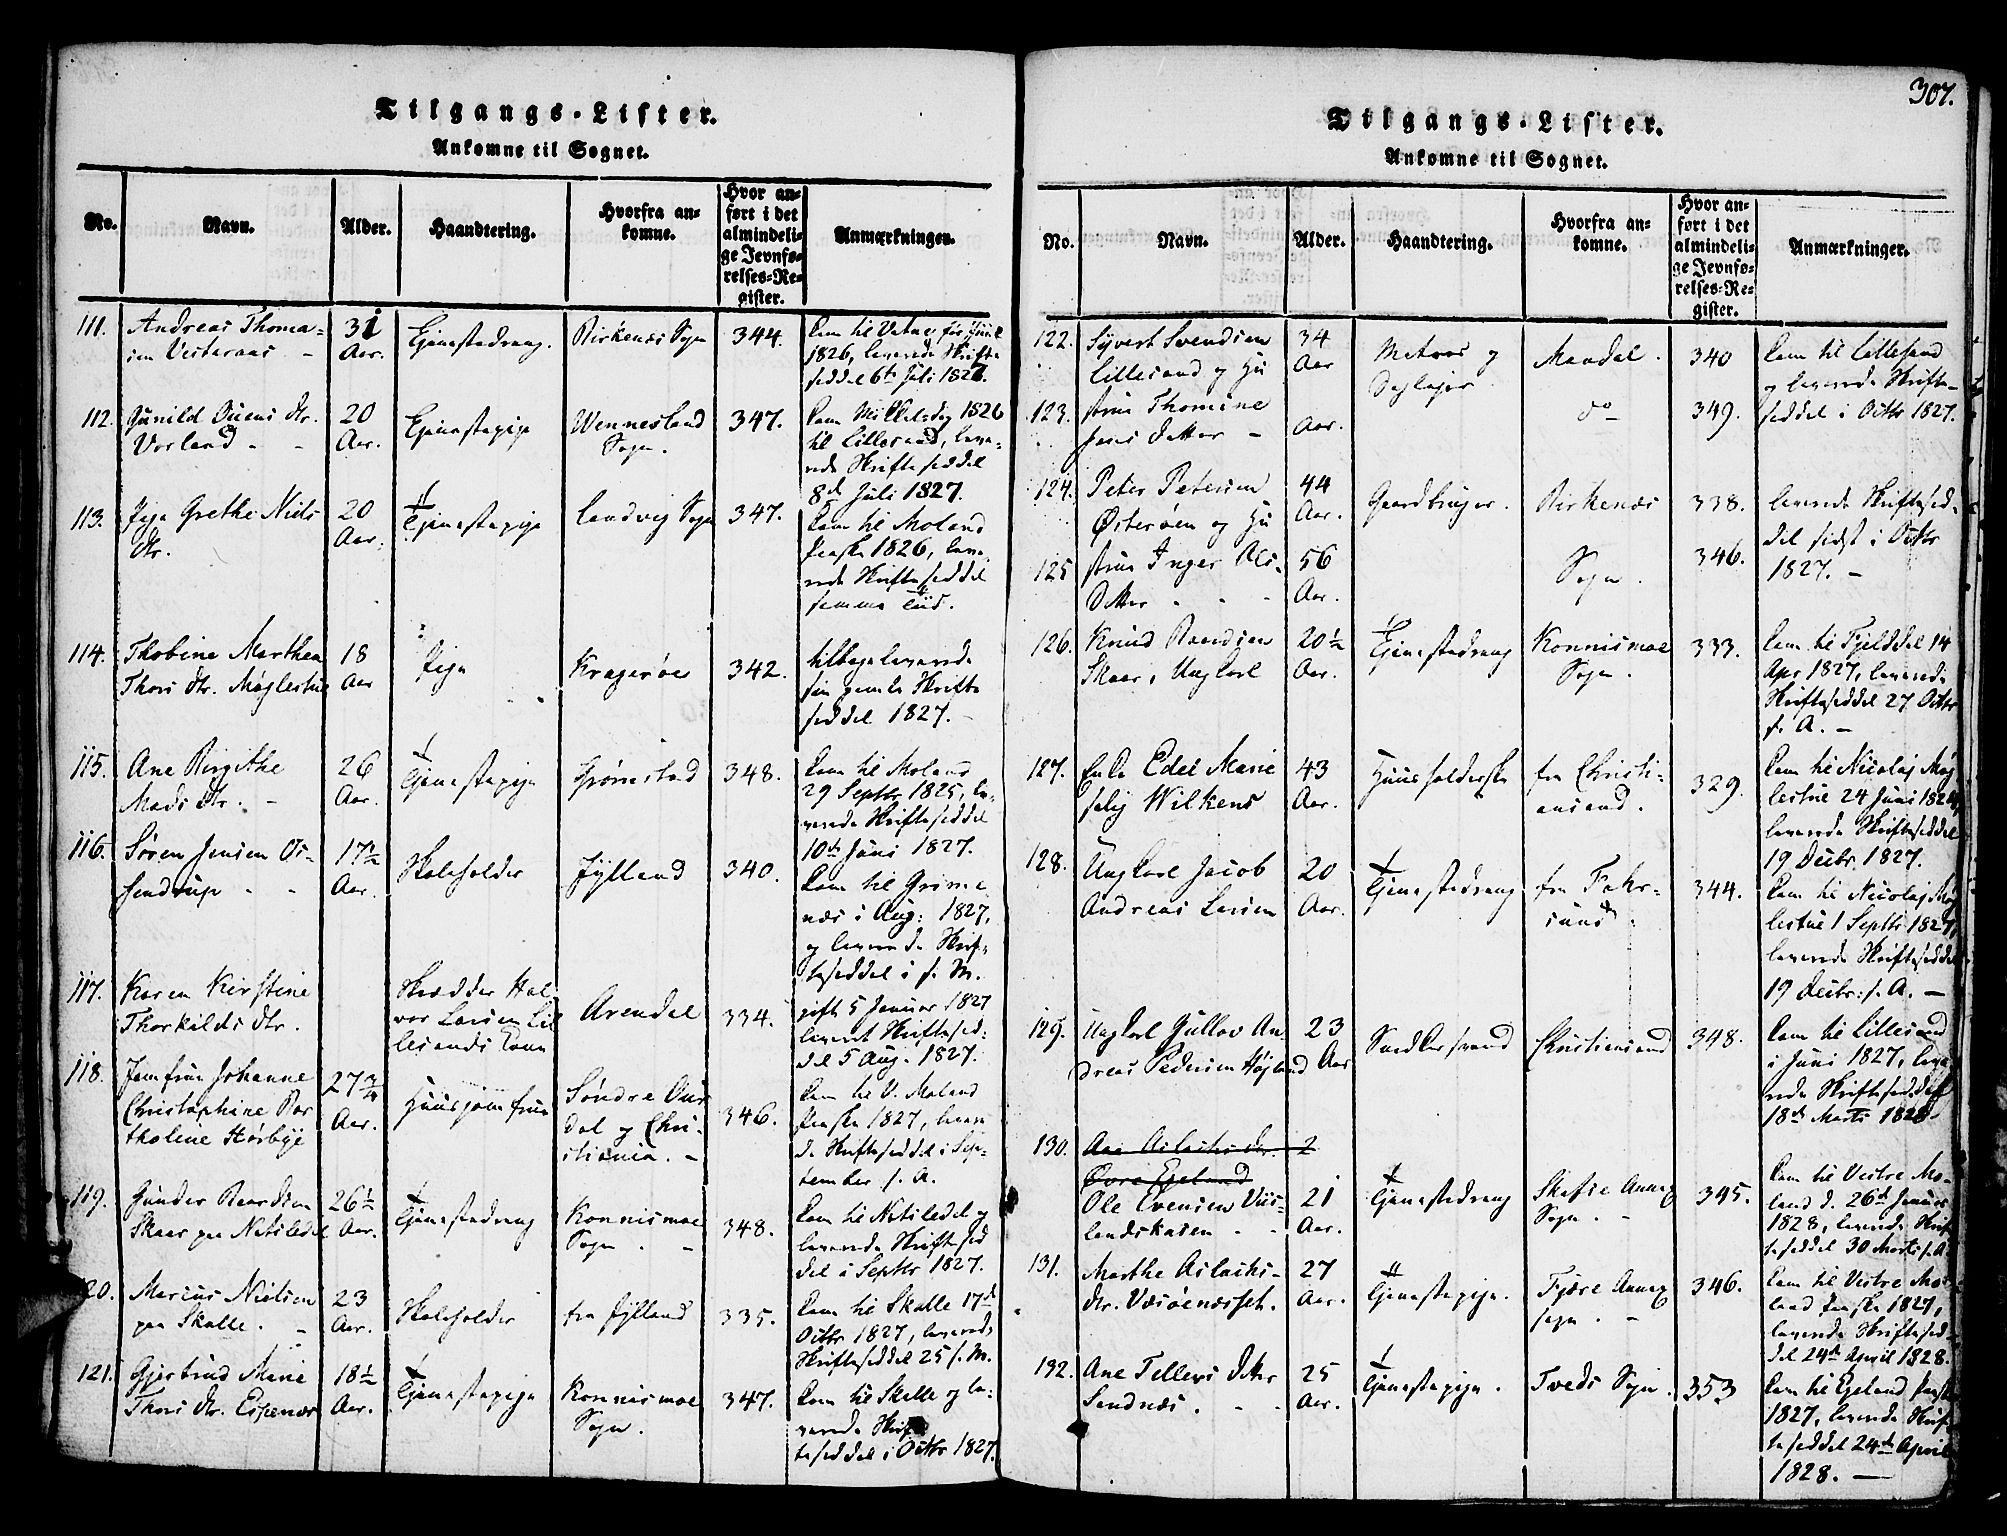 Tilgangs-Lister.
Ankomne til Sognet.
No. Navn. Alder. Haandtering. Hvorfra ankomne. Hvor anført i det almindelige Jevnførelses-Register. Anmærkninger.
111. Andreas Thoma-
sen Vesteraas -
31
Aar.
Tjenestedreng.
Birkenæs Sogn
344.
1826, leverede Skrifte
seddel 6te Juli 1827.
112. Gunild Ouens dtr.
Vorland - -
20
Aar.
Tjenestepige
Wennesland
Sogn.
347.
Kom Mikkelsdag 1826
til Lillesand, leve-
rede Skrifteseddel
8d Juli 1827.
113. Pige Grethe Niels
dtr.
20
Aar.
Tjenestepige
Landvig Sogn
347.
Kom til Moland
Paaske 1826, leve
rede Skrifteseddel
samme Tiid.
114. Thobine Marthea
Thors dtr. Møglestue
18
Aar
Pige
Kragerøe
342.
tilbageleverede
sin gamle Skrifte
seddel 1827. -
115. Ane Birgithe
Mads dtr. -
26
Aar.
Tjenestepige
Grømstad
348.
Kom til Moland
29 Septbr 1825, le-
verede Skrifteseddel
10de Juni 1827.
116. Søren Jensen Os-
sendrup - -
17½
Aar.
Skoleholder
Jylland
340.
Kom til Grime
næs i Aug: 1827,
og leverede Skrif-
teseddel i s. M.
117. Karen Kirstine
Thorkilds dtr.
Skrædder Hal-
vor Larsen Lil
lesands Kone
Arendal
334.
gift 5 Januar 1827
leveret Skriftesed-
del 5 Aug. 1827.
118. Jomfrue Johanne
Christophine Bar
tholine Hørbye
27¾
Aar.
Huusjomfrue
Søndre Our
dal og Chri-
stiania. -
346.
Kom til V. Moland
Paaske 1827, leve
de Skrifteseddel i Sep-
tember s. A.
119. Gunder Baardsen
Skaar paa Natsledel
26½
Aar.
Tjenestedreng
Konnismoe
Sogn. -
348.
Kom til Natsledel og
leverede Skriftesed
del i Septbr 1827.
120. Marius Nielsen
paa Skalle. -
23
Aar.
Skoleholder
fra Jylland
335.
Kom til Skalle 17d
Octbr 1827, leverede
Skrifteseddel 25 s. M.
121. Gjertrud Marie
Thors dtr. Espenæs
18½
Aar.
Tjenestepige
Konnismoe
Sogn.
347.
Kom til Skalle og le-
verede Skrif
teseddel i Octbr 1827.
307.
Tilgangs-Lister.
Ankomne til Sognet.
No. Navn. Alder. Haandtering. Hvorfra ankomne. Hvor anført i det almindelige Jevnførelses-Register. Anmærkninger.
122. Syvert Svendsen
Lillesand og Hu
34
Aar
Matros og
Dagleier
Mandal.
340
Kom til Lillesand
og leverede Skrifte-
seddel i Octbr 1827.
123. strue Thomine
Jens datter -
Aar.
do
349.
124. Peter Petersen
Østerøen og Hu
44
Aar.
Gaardbruger.
Birkenæs
338.
leverede Skriftesed-
del sidst i Octbr
1827. -
125 strue Inger Ols-
datter - - -
56
Aar.
Sogn.
346.
126. Knud Baardsen
Skaar, Ungkarl
20½
Aar.
Tjenestedreng
Konnismoe
Sogn.
333.
Kom til Fjelddal 14
Apr 1827, leverede
Skrifteseddel 27 Octbr
s. A. -
127. Enke Edel Marie
salig Wilkens
43
Aar.
Huusholderske
fra Christi-
ansand.
329.
Kom til Nicolaj Møg
lestue 24 Juni 1824,
leverede Skrifteseddel
19 Decbr. 1827.
128. Ungkarl Jacob
Andreas Larsen
20
Aar.
Tjenestedreng
fra Fahr-
sund.
344.
Kom til Nicolaj Møg
lestue 1 Septbr 1827,
leverede Skrifteseddel
19 Decbr: s. A. -
129. Ungkarl Gullov An
dreas Pedersen Højland
23
Aar
Snedkersvend
Christiansand
348.
Kom til Lillesand
i Juni 1827, leve
rede Skrifteseddel
18de Marts 1828
130. Ane Aslachs dtr. 2
Øvre Egeland
Ole Evensen Vus-
landskasen - -
21
Aar.
Tjenestedreng
Skafse Annex
Sogn. -
345.
Kom til Vestre Mo-
land d. 26d Januar
1828, leverede Skrif
teseddel 30 Marts s. A.
131. Marthe Aslachs-
dtr. Væsøenæsset.
27
Aar.
Tjenestepige.
Fjære Annex
sogn. -
346.
Kom til Vestre Mo-
land Paaske 1827,
leverede Skriftesed-
del 24de April 1828.
132. Ane Tellevs dattr
Sandnæs. - -
25
Aar.
Tjenestepige.
Tveds Sogn.
353
Kom til Egeland Paaske
1827, leverede Skrif
teseddel 24de April
1828. -